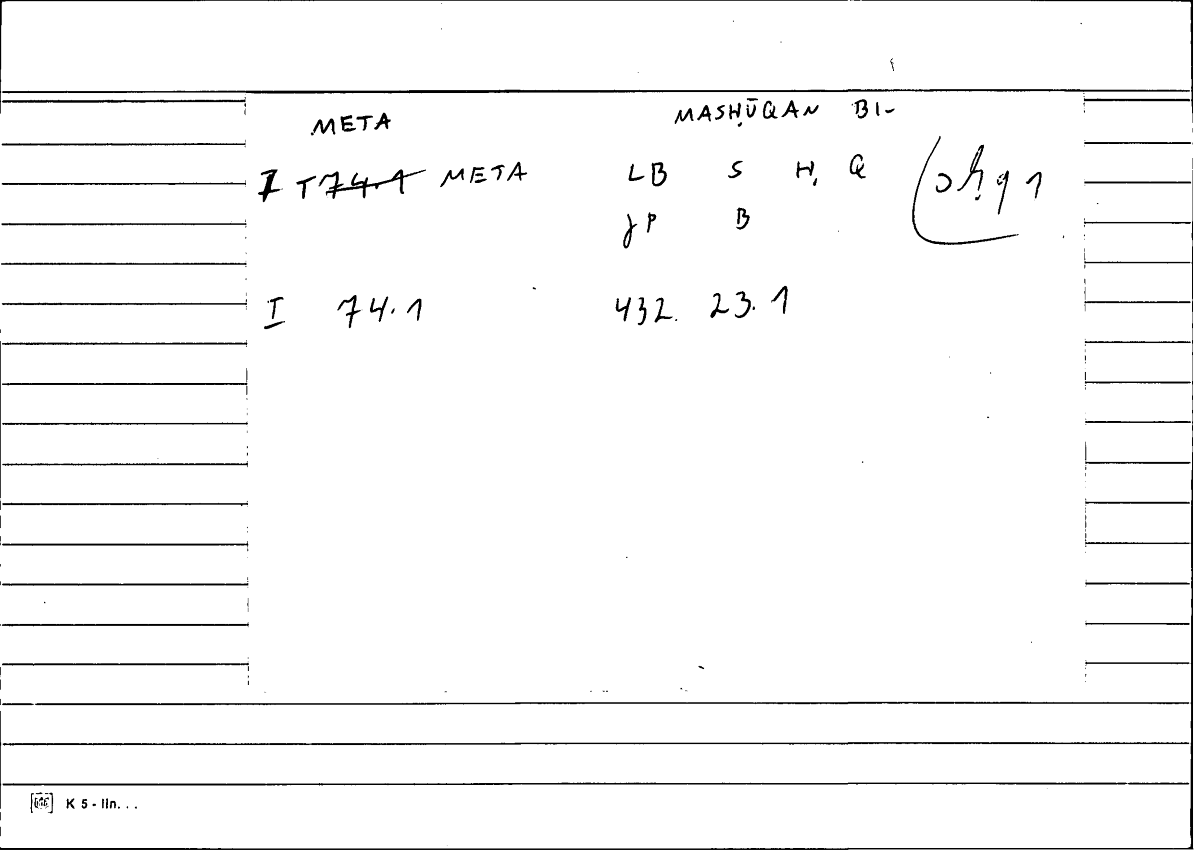 META MASḤŪQAN BI-
I T 74.1 META LB S Ḥ Q sḥq 1
JP B
I 74.1 432. 23. 1
K 5 - lin. . .